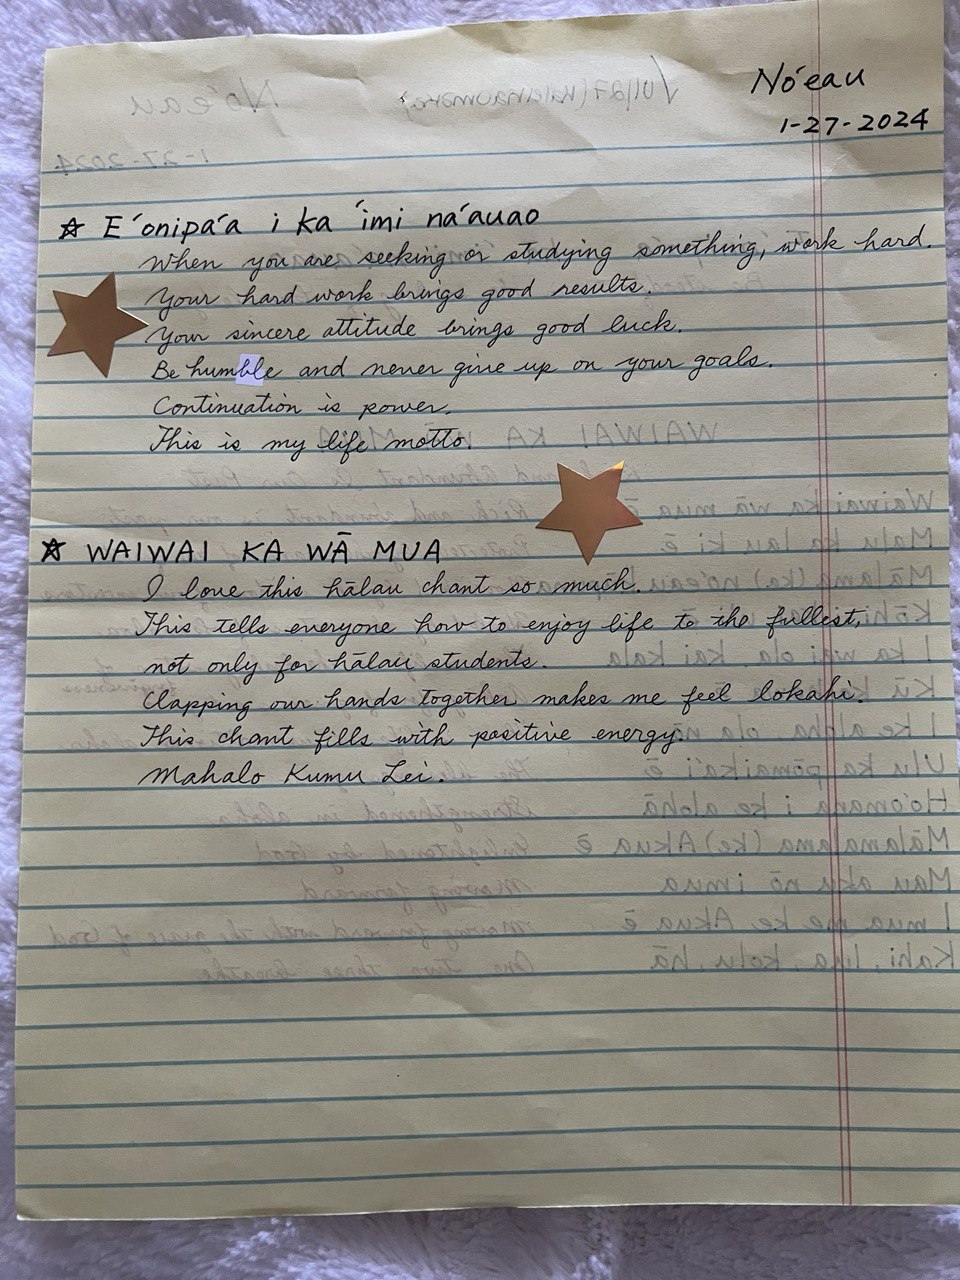 No'eau
1-27-2024
☆ E 'onipa'a i ka 'imi na'auao
When you are seeking or studying something, work hard.
Your hard work brings good results.
Your sincere attitude brings good luck.
Be humble and never give up on your goals.
Continuation is power.
This is my life motto.
☆ WAIWAI KA WĀ MUA
I love this hālau chant so much.
This tells everyone how to enjoy life to the fullest,
not only for hālau students.
Clapping our hands together makes me feel lokahi.
This chant fills with positive energy.
Mahalo Kumu Lei.